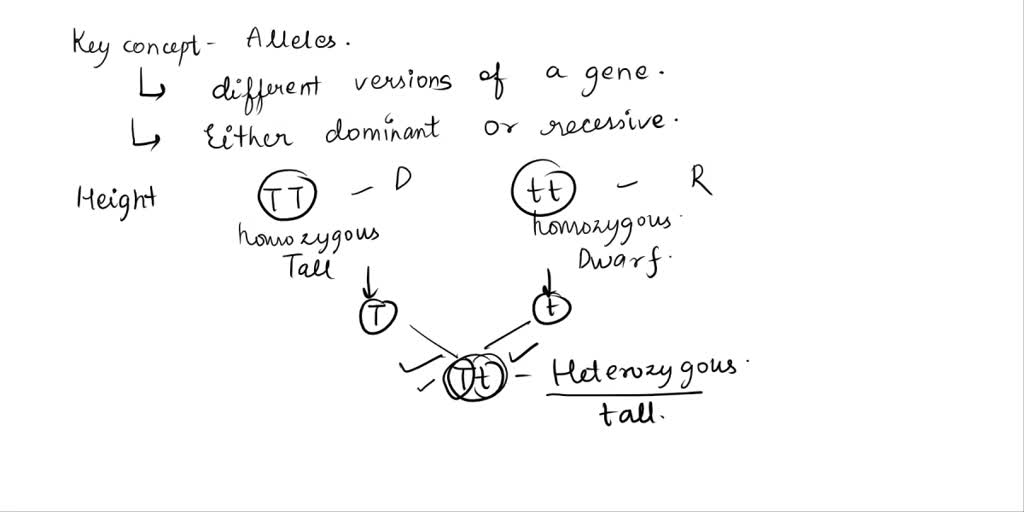 Key concept - Alleles.
↳ different versions of a gene.
↳ Either dominant or recessive.
Height TT - D tt - R
homozygous homozygous.
Tall Dwarf.
T t
Tt - Heterozygous.
tall.